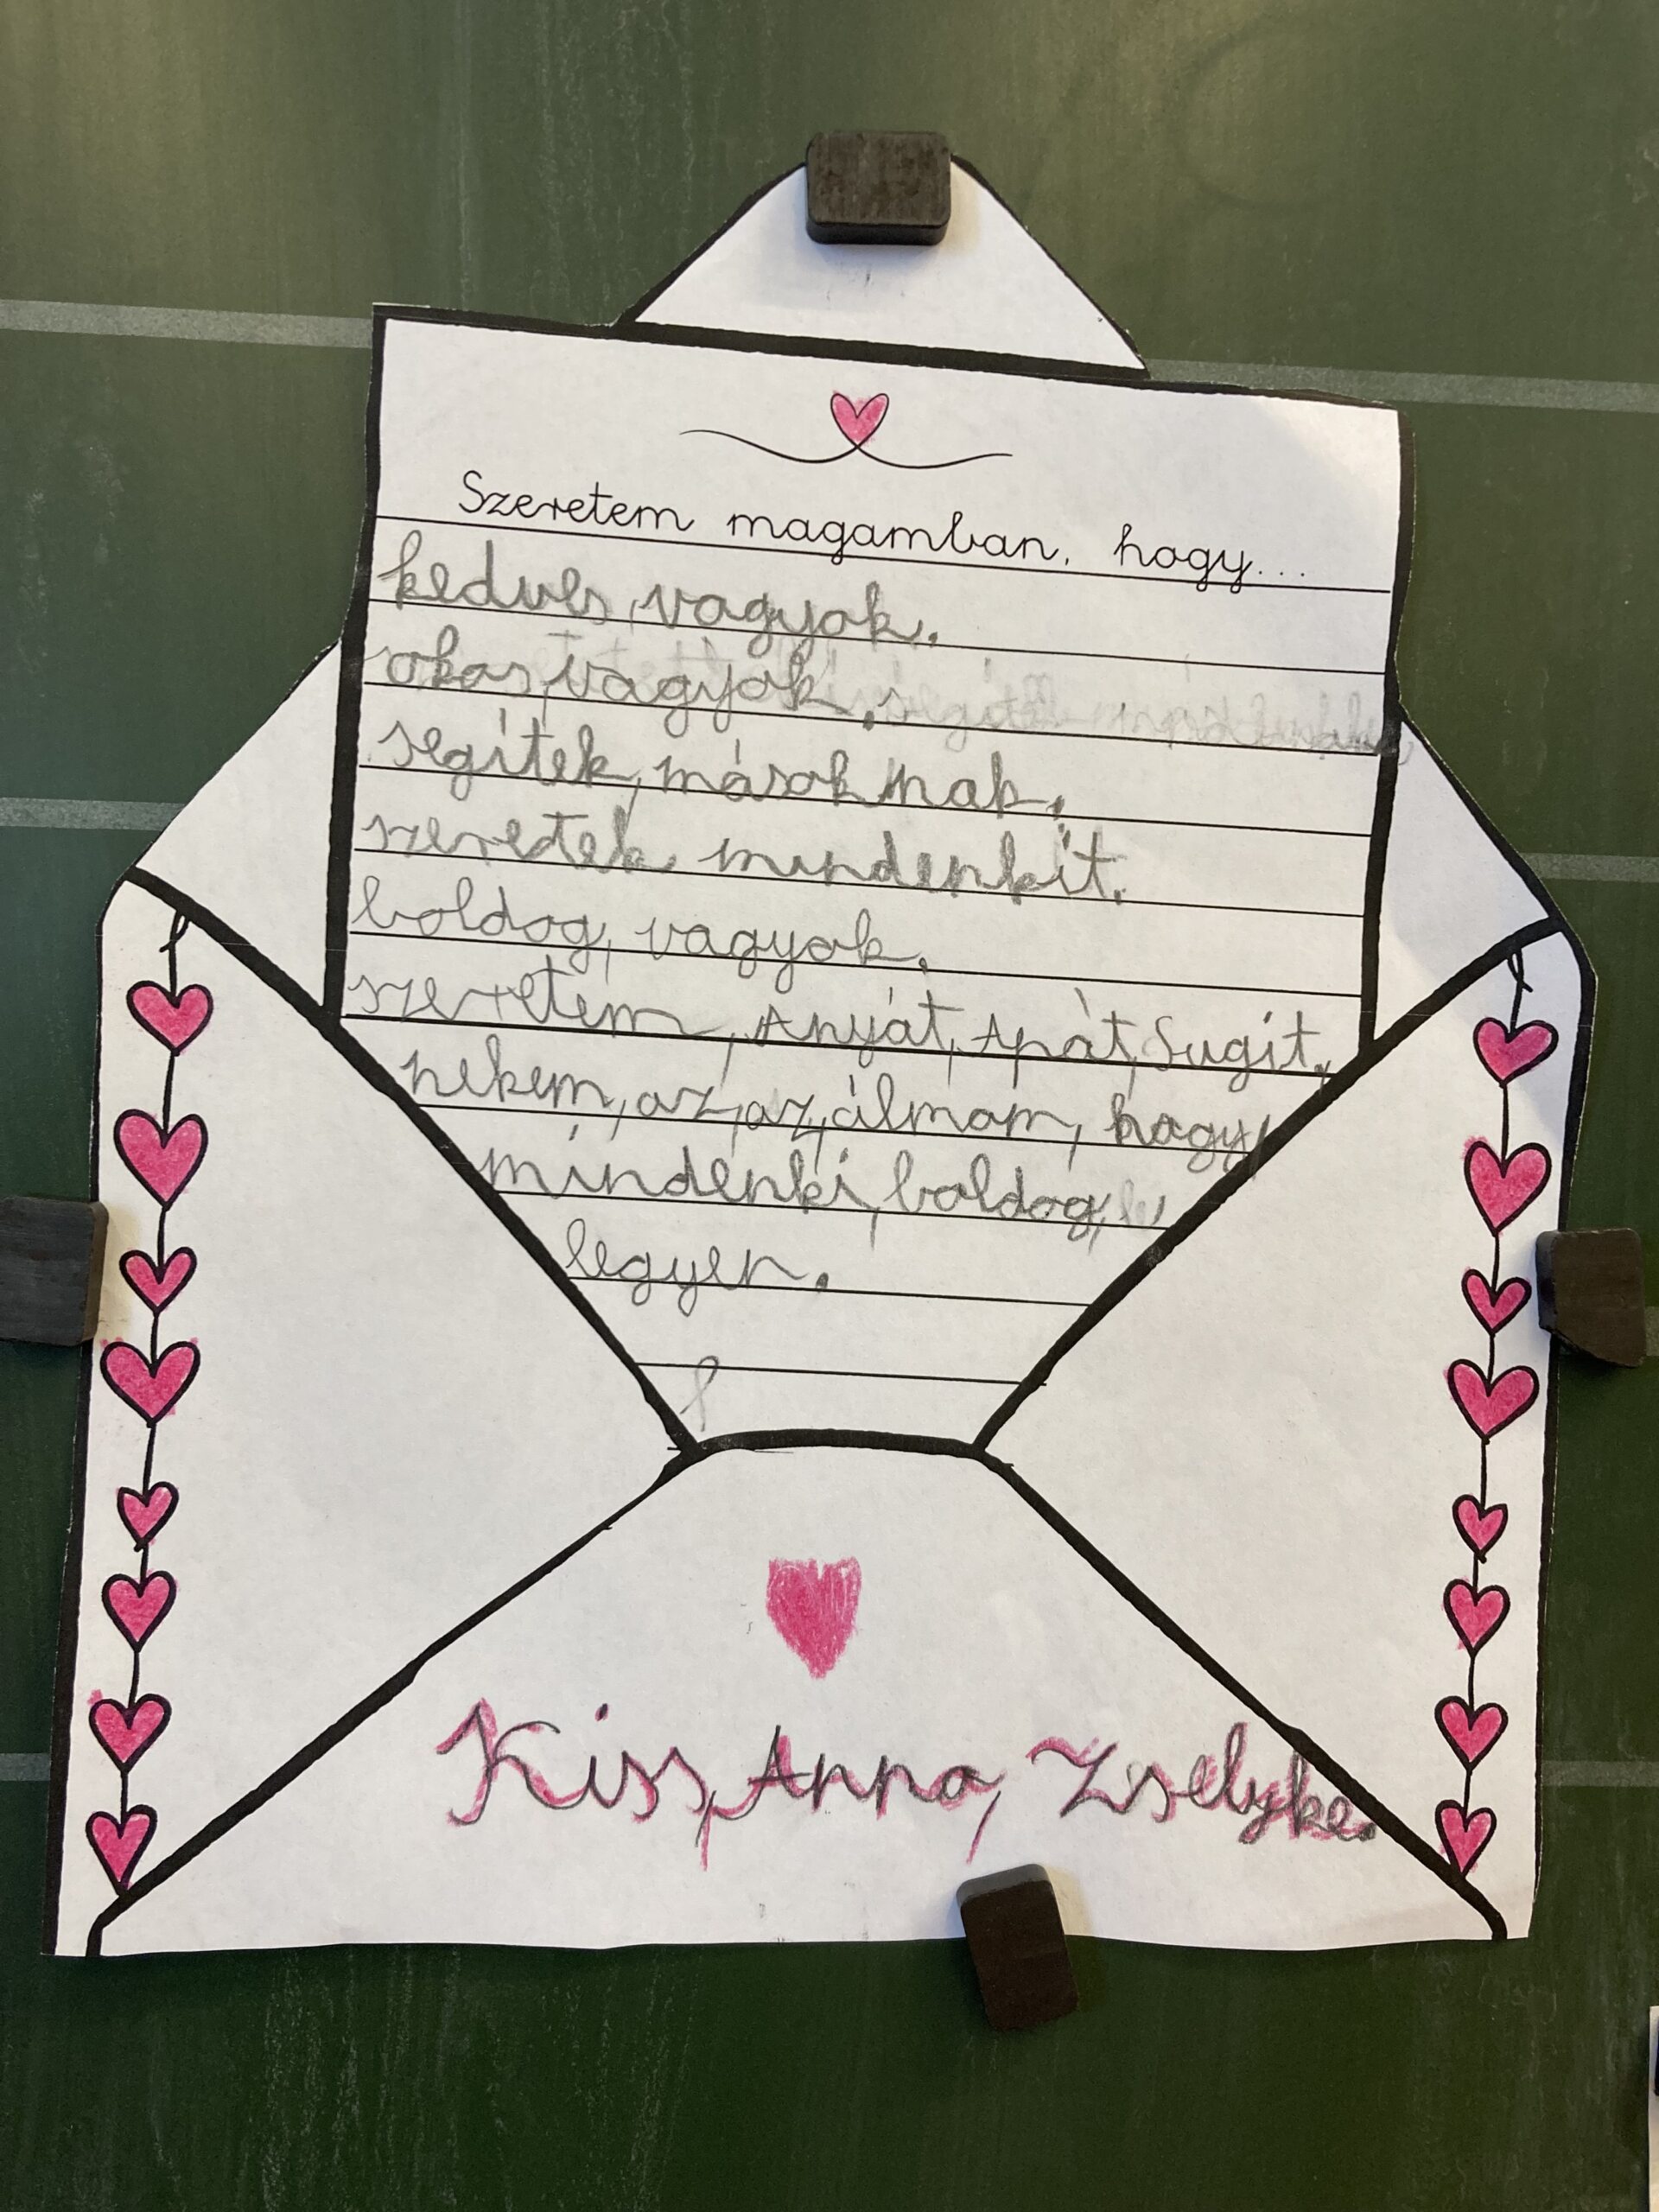 Szeretem magamban, hogy...
kedves, vagyok.
okos, vagyok,
segítek, másoknak.
szeretek mindenkit.
boldog, vagyok.
szeretem, Anyát, Apát, Sugit,
nekem, az, az, álmom, hogy
mindenki, boldog,
legyen.
Kiss, Anna, Zselyke.